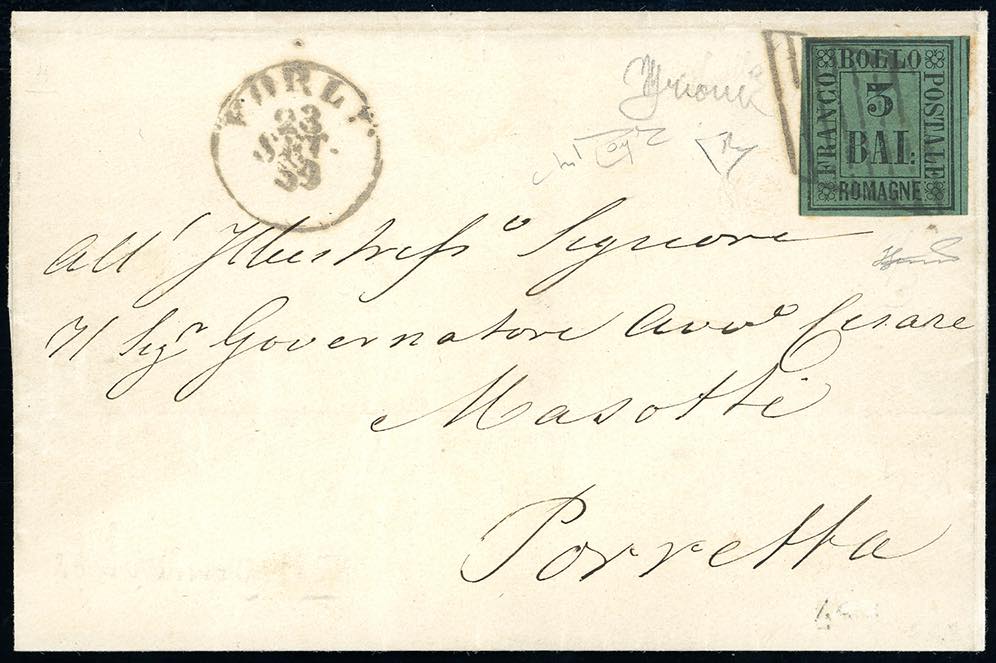 FORLÌ
23
SET.
59
FRANCO BOLLO POSTALE
3
BAI:
ROMAGNE
All' Illustress.o Signore
Il Sigr. Governatore Avvo. Cesare
Masotti
Porretta